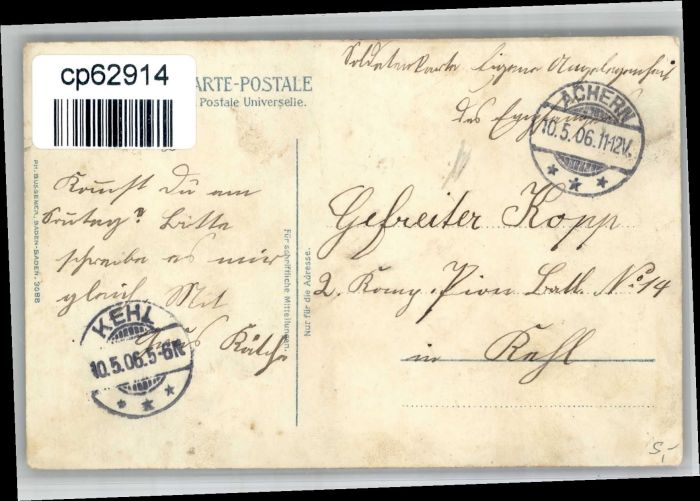 cp62914
CARTE-POSTALE
Postale Universelle.
Soldatenkarte Eigene Angelegenheit
des Empfängers
ACHERN
10.5.06.11-12V.
Kommst Du am
Sonntag? Bitte
schreibe es mir
gleich Mit
Gruss Käthe
KEHL
10.5.06.5-6N.
Gefreiter Kopp
2. Komp. Pion. Batl. No 14
in Kehl
Für schriftliche Mitteilungen.
Nur für die Adresse.
PH. BUSSEMER, BADEN-BADEN, 3088
5,-